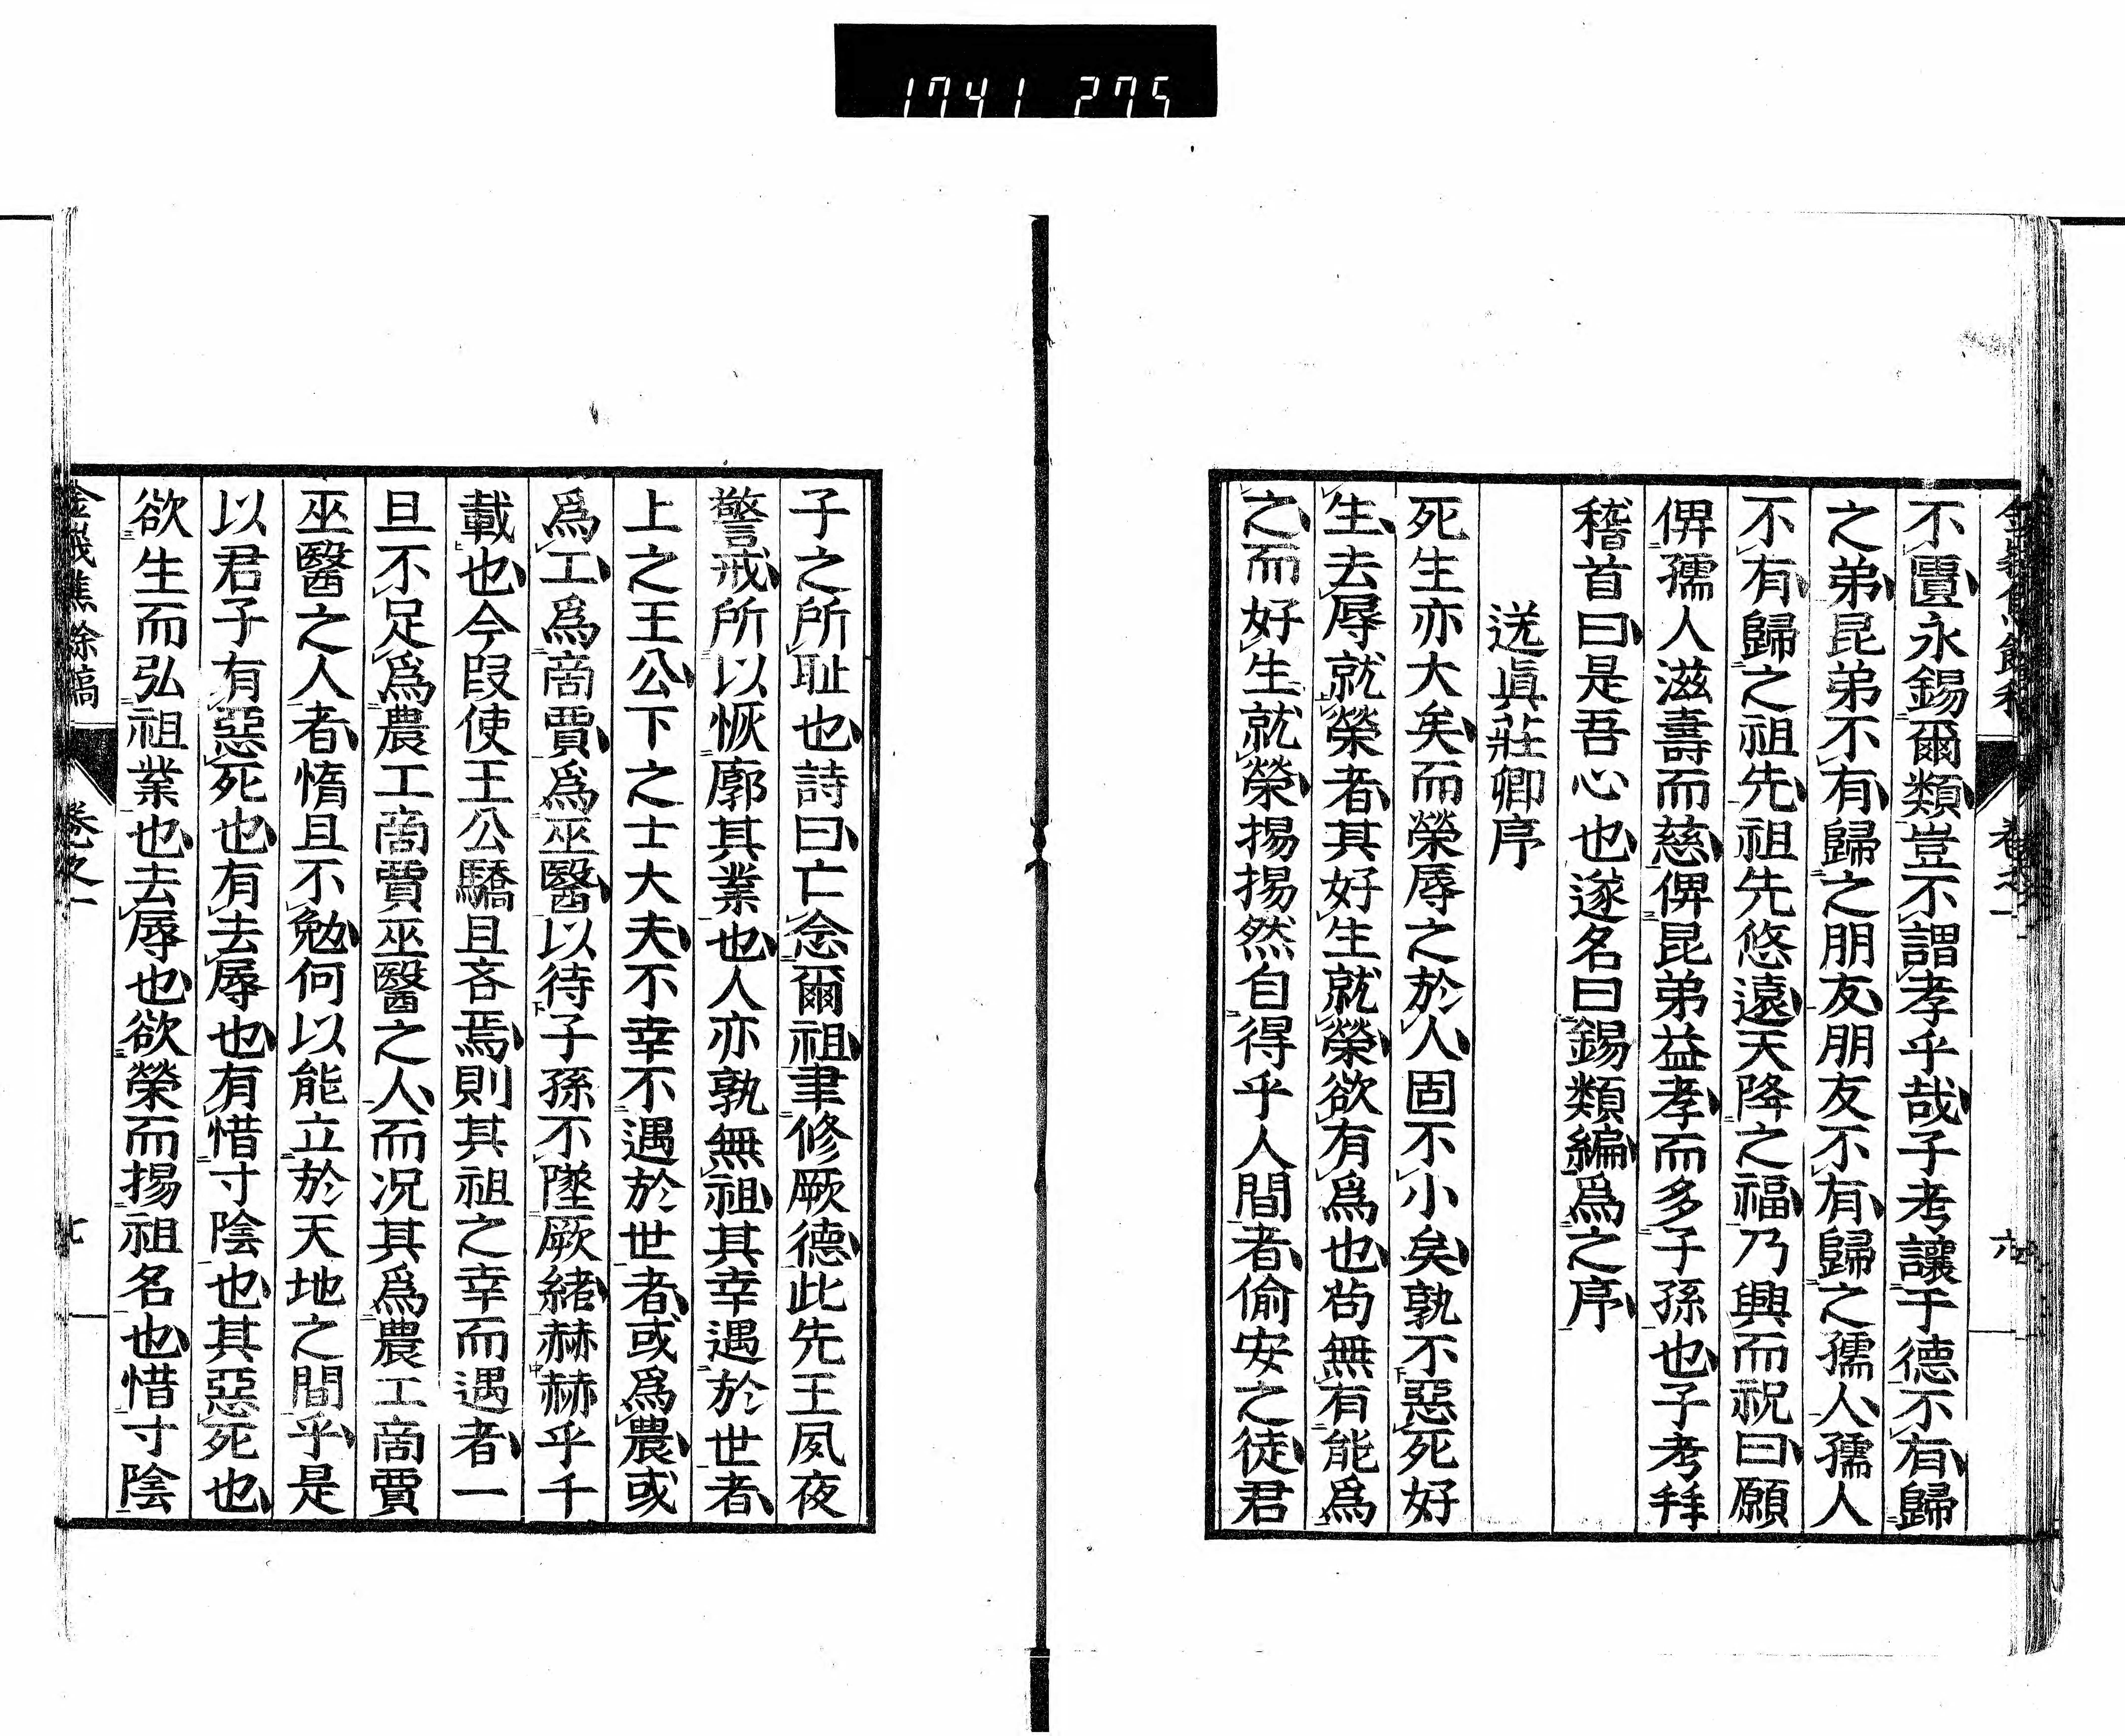 1741 275
不匱永錫爾類豈不謂孝乎哉子考讓于德不有歸
之弟昆弟不有歸之朋友朋友不有歸之孺人孺人
不有歸之祖先祖先悠遠天降之福乃興而祝曰願
俾孺人滋壽而慈俾昆弟益孝而多子孫也子考拜
稽首曰是吾心也遂名曰錫類編爲之序
送眞莊卿序
死生亦大矣而榮辱之於人固不小矣孰不惡死好
生去辱就榮者其好生就榮欲有爲也苟無有能爲
之而好生就榮揚揚然自得乎人間者偷安之徒君
卷之一
六
子之所耻也詩曰亡念爾祖聿修厥德此先王夙夜
警戒所以恢廓其業也人亦孰無祖其幸遇於世者
上之王公下之士大夫不幸不遇於世者或爲農或
爲工爲啇賈爲巫醫以待子孫不墜厥緒赫赫乎千
載也今叚使王公驕且吝焉則其祖之幸而遇者一
旦不足爲農工啇賈巫醫之人而况其爲農工啇賈
巫醫之人者惰且不勉何以能立於天地之間乎是
以君子有惡死也有去辱也有惜寸陰也其惡死也
欲生而弘祖業也去辱也欲榮而揚祖名也惜寸陰
樵餘稿
卷之一
七